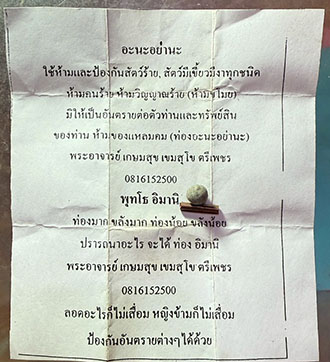 อะนะอย่านะ
ใช้ห้ามและป้องกันสัตว์ร้าย, สัตว์มีเขี้ยวมีงาทุกชนิด
ห้ามคนร้าย ห้ามวิญญาณร้าย (ห้ามขโมย)
มิให้เป็นอันตรายต่อตัวท่านและทรัพย์สิน
ของท่าน ห้ามของแหลมคม (ท่องอะนะอย่านะ)
พระอาจารย์ เกษมสุข เขมสุโข ตรีเพชร
0816152500
พุทโธ อิมานิ
ท่องมาก ขลังมาก ท่องน้อย ขลังน้อย
ปรารถนาอะไร จะได้ ท่อง อิมานิ
พระอาจารย์ เกษมสุข เขมสุโข ตรีเพชร
0816152500
ลอดอะไรก็ไม่เสื่อม หญิงข้ามก็ไม่เสื่อม
ป้องกันอันตรายต่างๆได้ด้วย